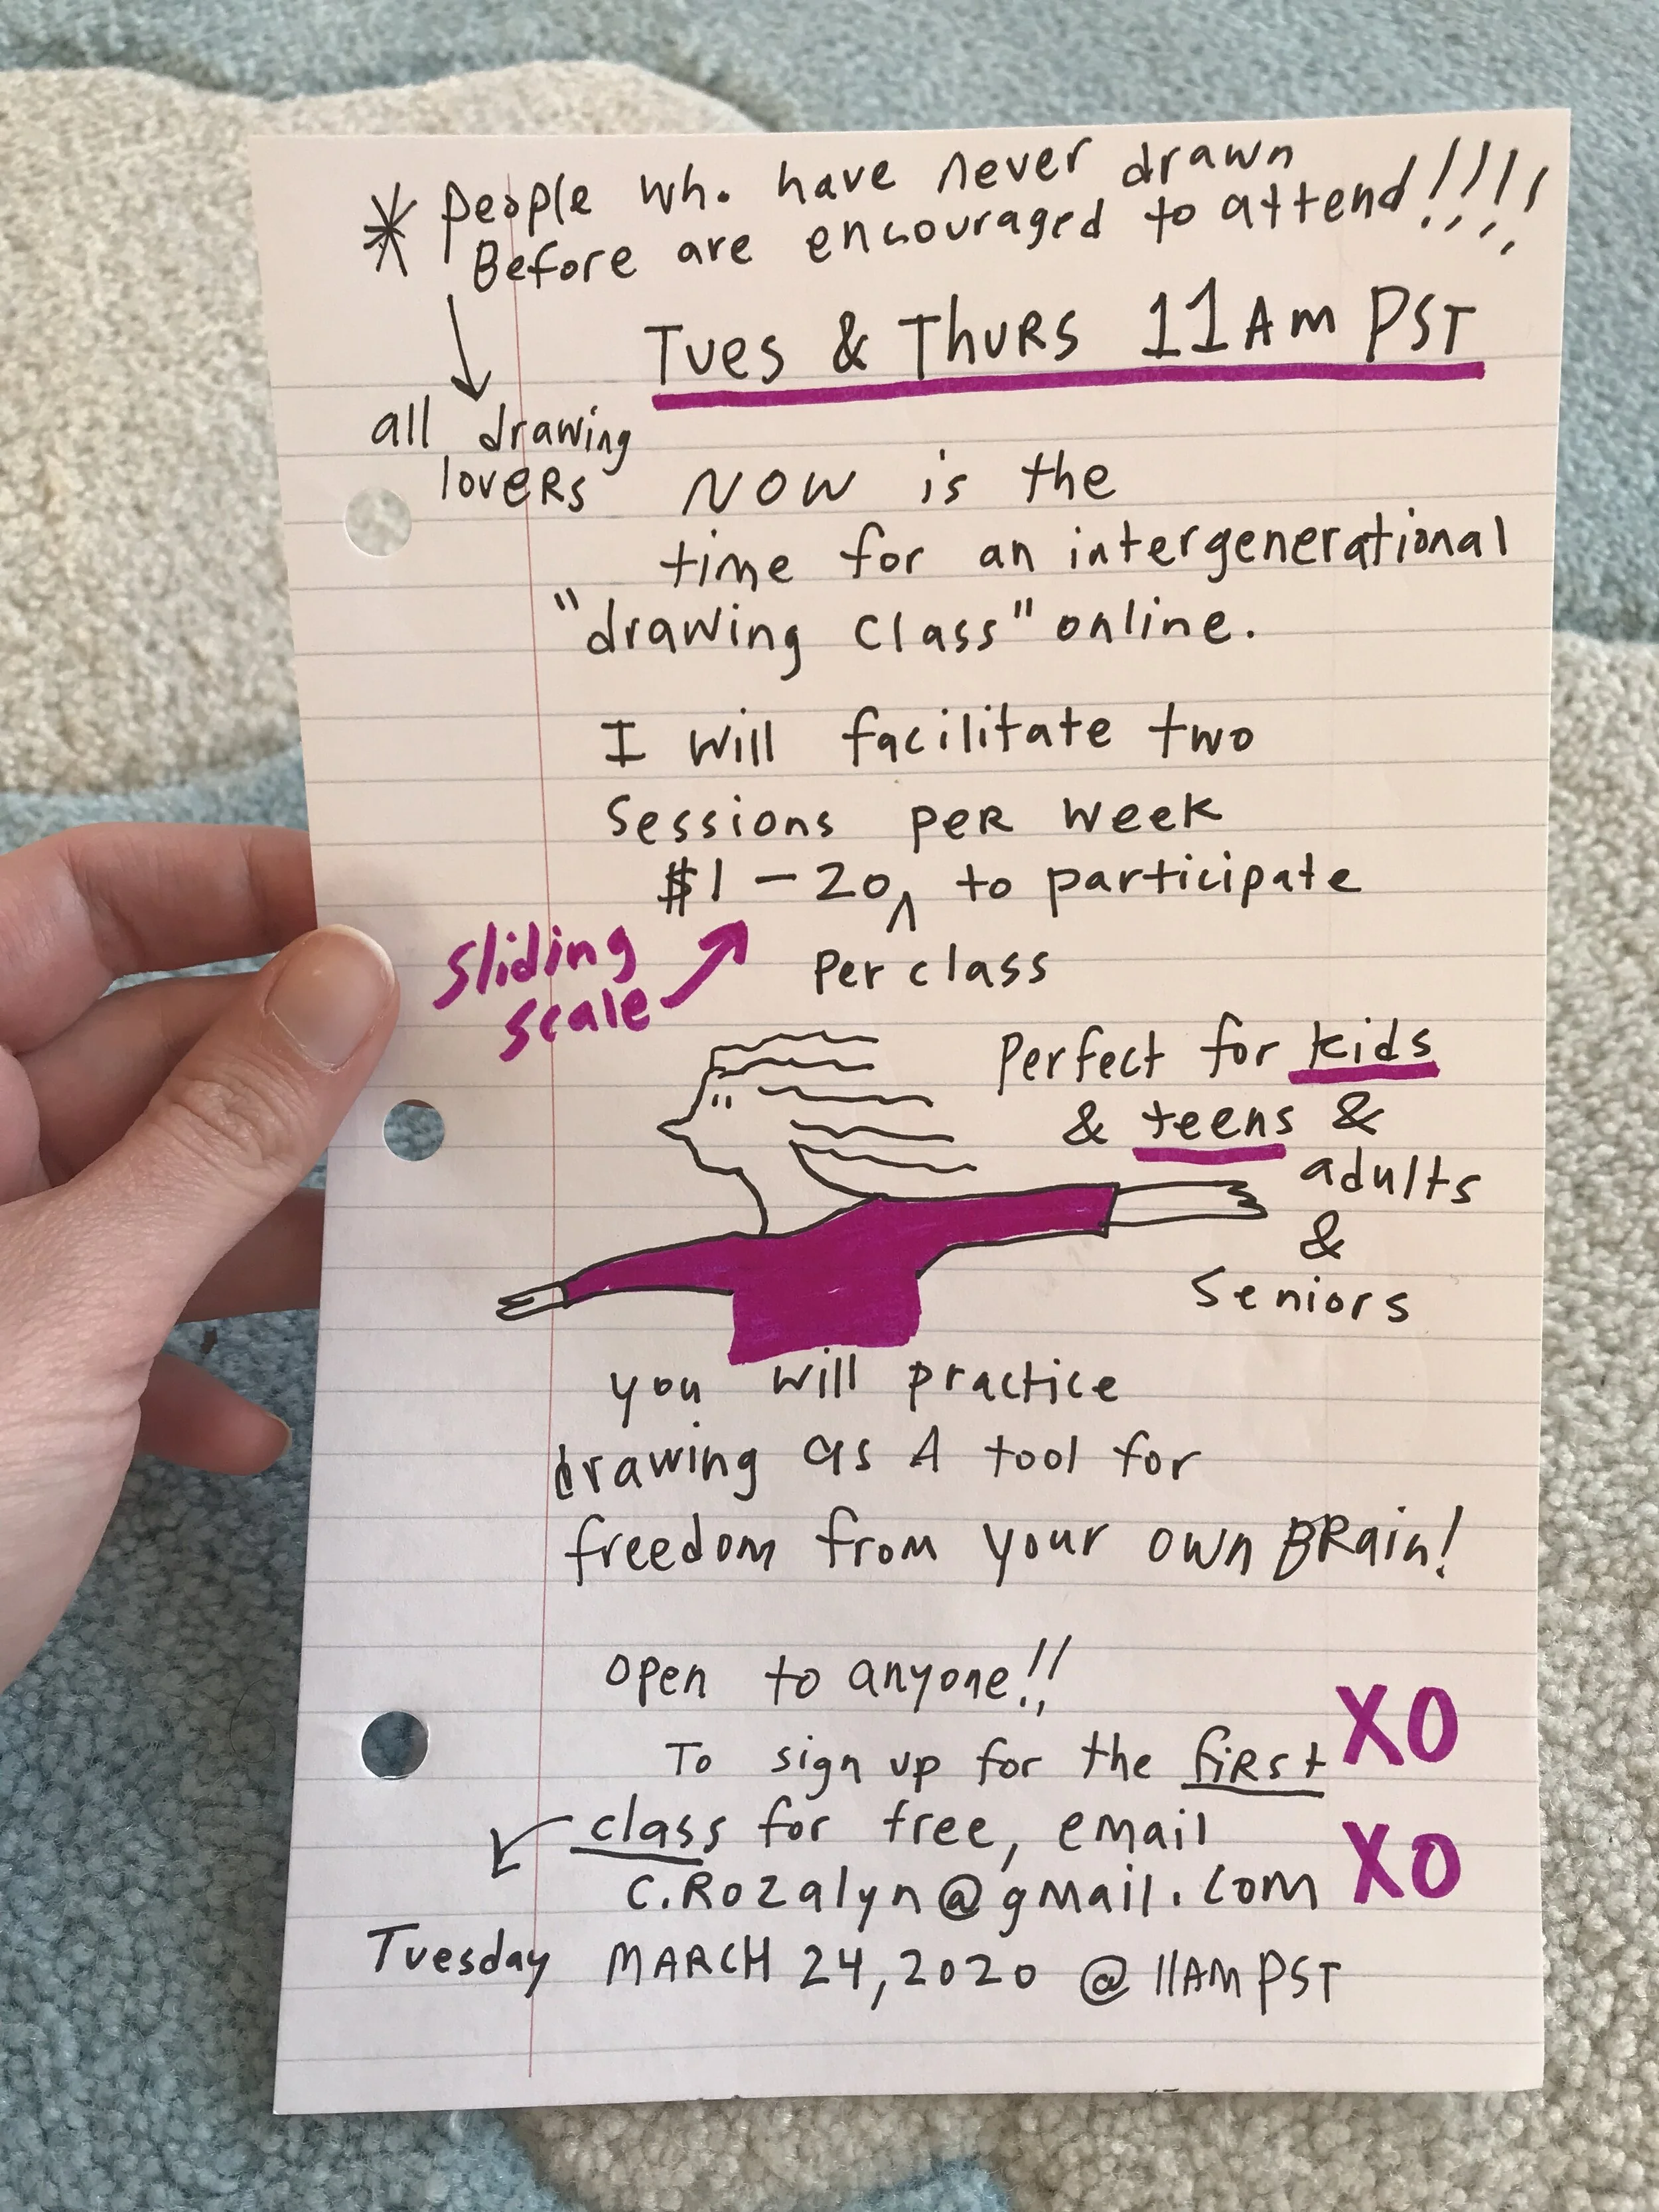 * people who have never drawn
Before are encouraged to attend!!!!
Tues & Thurs 11AM PST
all drawing
lovers
NOW is the
time for an intergenerational
"drawing class" online.
I will facilitate two
sessions per week
$1-20 ^ to participate
per class
sliding
scale
perfect for kids
& teens &
adults
&
seniors
you will practice
drawing as A tool for
freedom from your own BRain!
open to anyone!!
To sign up for the first
class for free, email
c.Rozalyn@gmail.com
XO
XO
Tuesday MARCH 24, 2020 @ 11AM PST